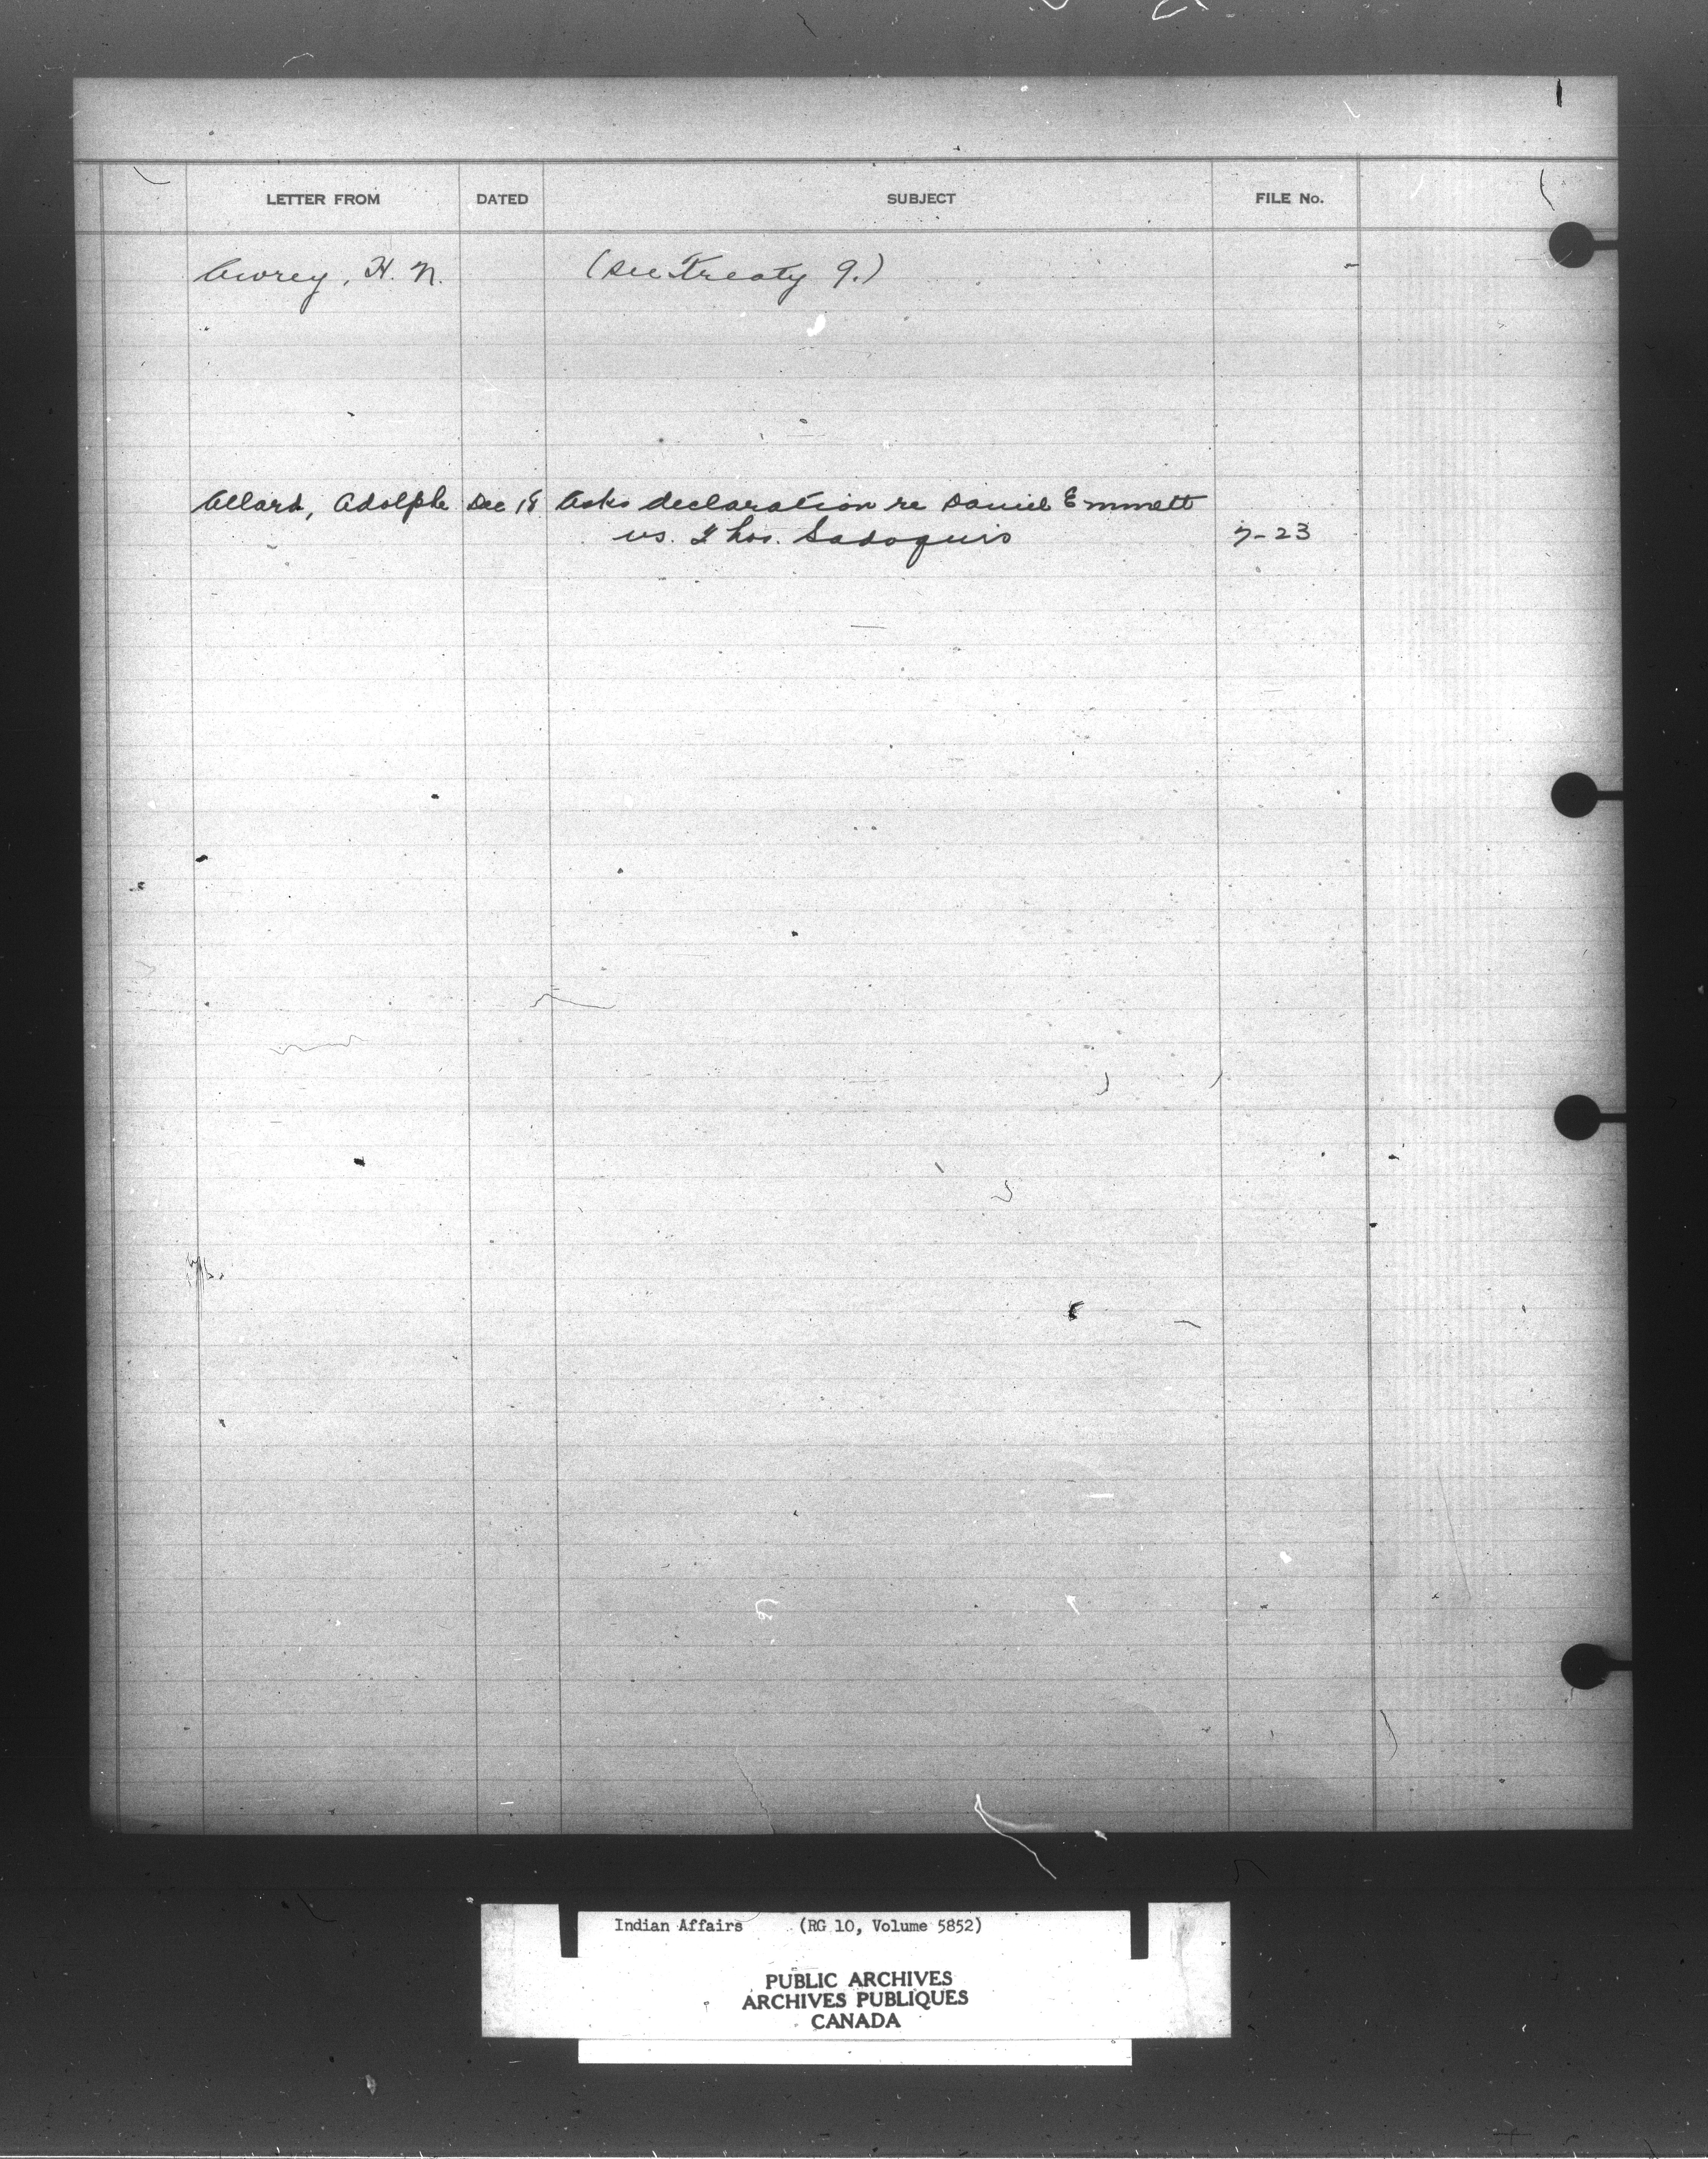 LETTER FROM DATED SUBJECT FILE No.
Awrey, H. N. (see Treaty 9.)
Allard, Adolphe Dec 18 Asks declaration re Daniel Emmett
vs. Thos. Sadoquis 7-23
Indian Affairs (RG 10, Volume 5852)
PUBLIC ARCHIVES
ARCHIVES PUBLIQUES
CANADA